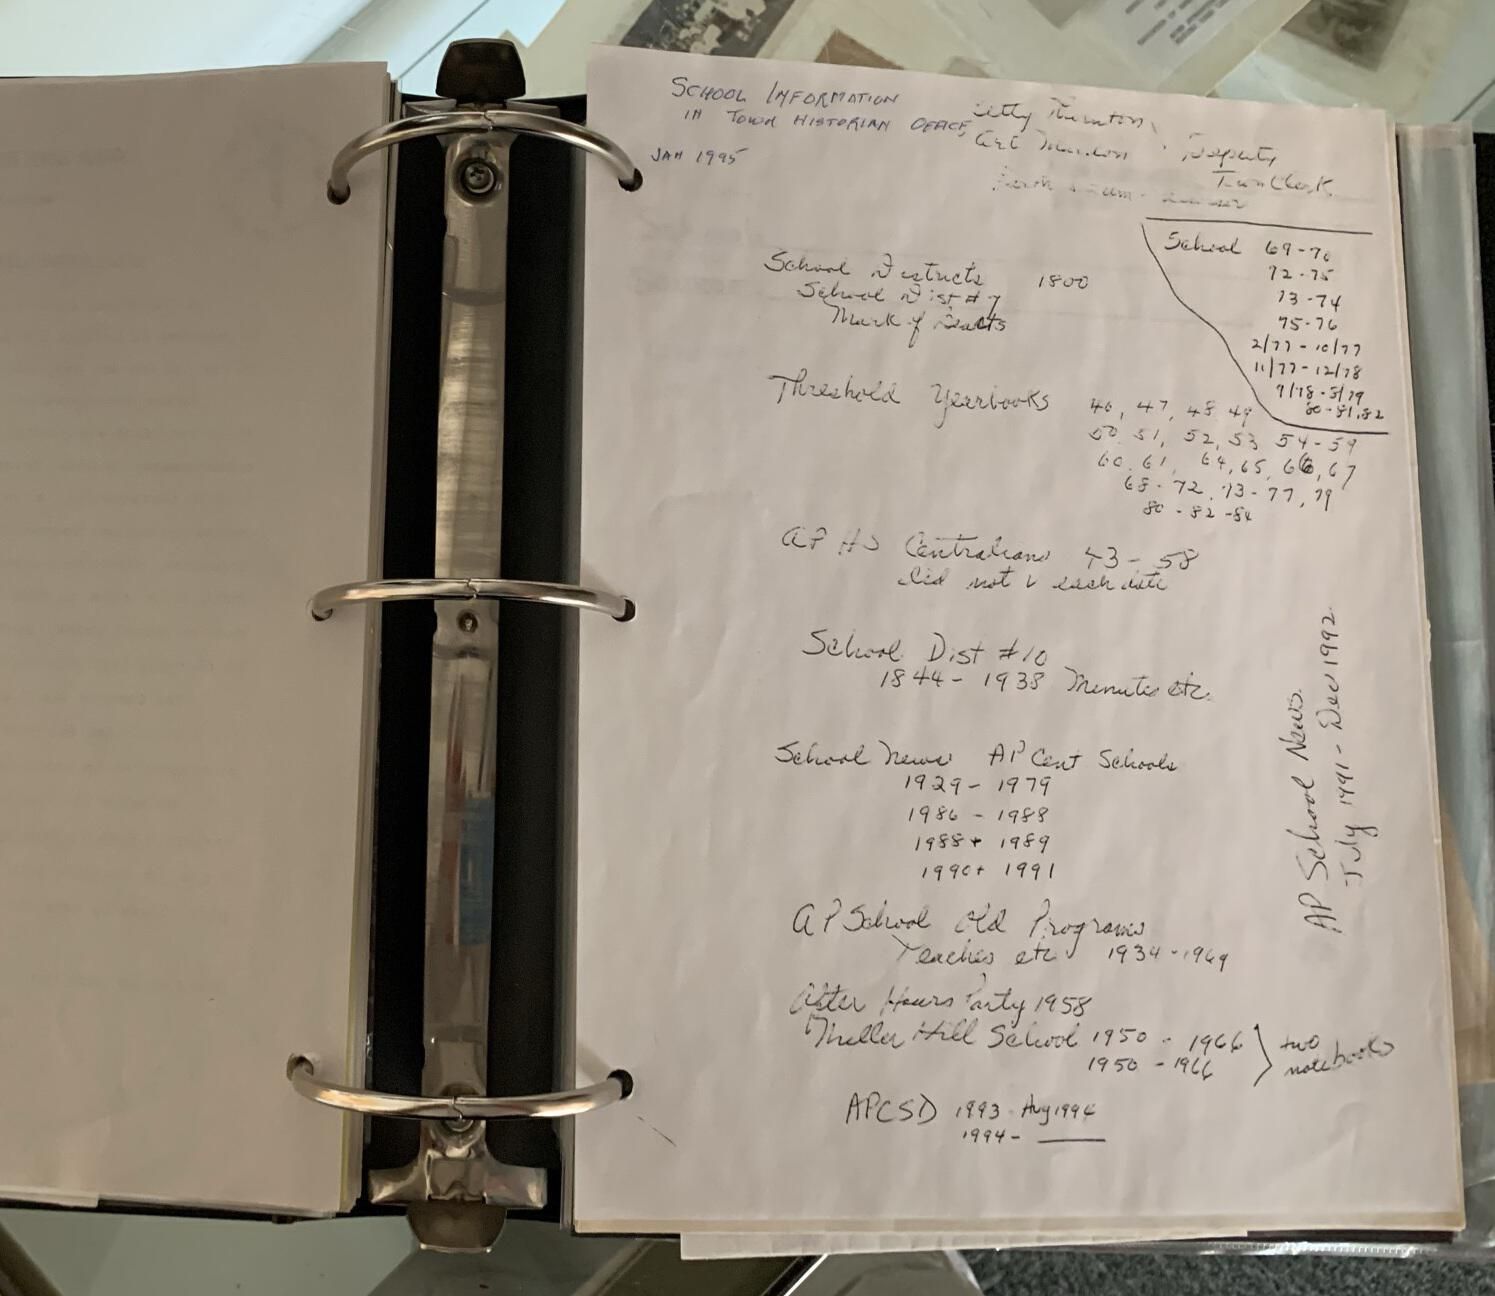 SCHOOL INFORMATION
IN TOWN HISTORIAN OFFICE,
JAN 1995
Betty
Art Deputy
Town Clerk
School 69-70
72-75
73-74
75-76
2/77 - 10/77
11/77 - 12/78
9/78-8/79
80-81,82
School Districts 1800
School Dist #7
Mark of
Threshold Yearbooks 46, 47, 48 49
50 51, 52, 53 54-59
60.61, 64, 65, 66, 67
68-72, 73-77, 79
80-82-84
AP HS Centralians 43-58
did not v each date
School Dist #10
1844- 1938 Minutes etc.
School News AP Cent Schools
1929- 1979
1986 - 1988
1988+ 1989
1990+ 1991
AP School Old Programs
Teaches etc 1934-1969
After Hours Party 1958
Miller Hill School 1950 - 1966
1950 - 1966
two
notebooks
APCSD 1993 - Aug 1994
1994-
AP School News.
July 1991 - Dec 1992